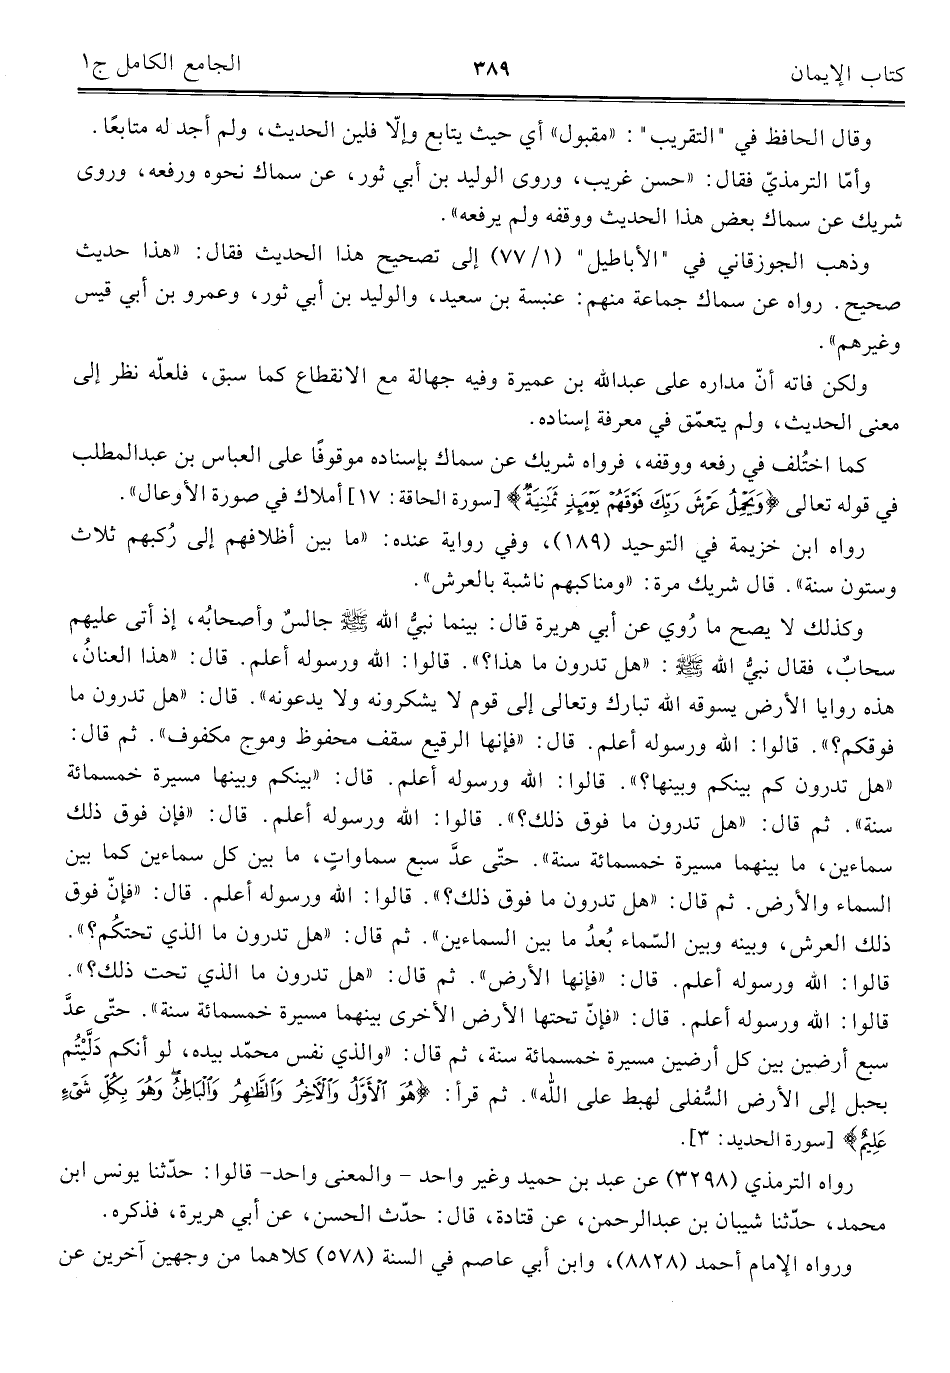 كتاب الإيمان ٣٨٩ الجامع الكامل ج١
وقال الحافظ في "التقريب": «مقبول» أي حيث يتابع وإلّا فلين الحديث، ولم أجد له متابعًا.
وأمّا الترمذيّ فقال: «حسن غريب، وروى الوليد بن أبي ثور، عن سماك نحوه ورفعه، وروى
شريك عن سماك بعض هذا الحديث ووقفه ولم يرفعه».
وذهب الجوزقاني في "الأباطيل" (١/٧٧) إلى تصحيح هذا الحديث فقال: «هذا حديث
صحيح. رواه عن سماك جماعة منهم: عنبسة بن سعيد، والوليد بن أبي ثور، وعمرو بن أبي قيس
وغيرهم».
ولكن فاته أنّ مداره على عبدالله بن عميرة وفيه جهالة مع الانقطاع كما سبق، فلعلّه نظر إلى
معنى الحديث، ولم يتعمّق في معرفة إسناده.
كما اختُلف في رفعه ووقفه، فرواه شريك عن سماك بإسناده موقوفًا على العباس بن عبدالمطلب
في قوله تعالى ﴿وَيَحْمِلُ عَرْشَ رَبِّكَ فَوْقَهُمْ يَوْمَئِذٍ ثَمَٰنِيَةٌ﴾ [سورة الحاقة: ١٧] أملاك في صورة الأوعال».
رواه ابن خزيمة في التوحيد (١٨٩)، وفي رواية عنده: «ما بين أظلافهم إلى رُكبهم ثلاث
وستون سنة». قال شريك مرة: «ومناكبهم ناشبة بالعرش».
وكذلك لا يصح ما رُوي عن أبي هريرة قال: بينما نبيُّ الله ﷺ جالسٌ وأصحابُه، إذ أتى عليهم
سحابٌ، فقال نبيُّ الله ﷺ: «هل تدرون ما هذا؟». قالوا: الله ورسوله أعلم. قال: «هذا العنانُ،
هذه روايا الأرض يسوقه الله تبارك وتعالى إلى قوم لا يشكرونه ولا يدعونه». قال: «هل تدرون ما
فوقكم؟». قالوا: الله ورسوله أعلم. قال: «فإنها الرقيع سقف محفوظ وموج مكفوف». ثم قال:
«هل تدرون كم بينكم وبينها؟». قالوا: الله ورسوله أعلم. قال: «بينكم وبينها مسيرة خمسمائة
سنة». ثم قال: «هل تدرون ما فوق ذلك؟». قالوا: الله ورسوله أعلم. قال: «فإن فوق ذلك
سماءين، ما بينهما مسيرة خمسمائة سنة». حتّى عدَّ سبع سماواتٍ، ما بين كل سماءين كما بين
السماء والأرض. ثم قال: «هل تدرون ما فوق ذلك؟». قالوا: الله ورسوله أعلم. قال: «فإنّ فوق
ذلك العرش، وبينه وبين السّماء بُعدُ ما بين السماءين». ثم قال: «هل تدرون ما الذي تحتكُم؟».
قالوا: الله ورسوله أعلم. قال: «فإنها الأرض». ثم قال: «هل تدرون ما الذي تحت ذلك؟».
قالوا: الله ورسوله أعلم. قال: «فإنّ تحتها الأرض الأخرى بينهما مسيرة خمسمائة سنة». حتّى عدَّ
سبع أرضين بين كل أرضين مسيرة خمسمائة سنة، ثم قال: «والذي نفس محمّد بيده، لو أنكم دَلَّيْتُم
بحبل إلى الأرض السُّفلى لهبط على الله». ثم قرأ: ﴿هُوَ ٱلْأَوَّلُ وَٱلْآخِرُ وَٱلظَّٰهِرُ وَٱلْبَاطِنُ ۖ وَهُوَ بِكُلِّ شَىْءٍ
عَلِيمٌ﴾ [سورة الحديد: ٣].
رواه الترمذي (٣٢٩٨) عن عبد بن حميد وغير واحد - والمعنى واحد- قالوا: حدّثنا يونس ابن
محمد، حدّثنا شيبان بن عبدالرحمن، عن قتادة، قال: حدّث الحسن، عن أبي هريرة، فذكره.
ورواه الإمام أحمد (٨٨٢٨)، وابن أبي عاصم في السنة (٥٧٨) كلاهما من وجهين آخرين عن